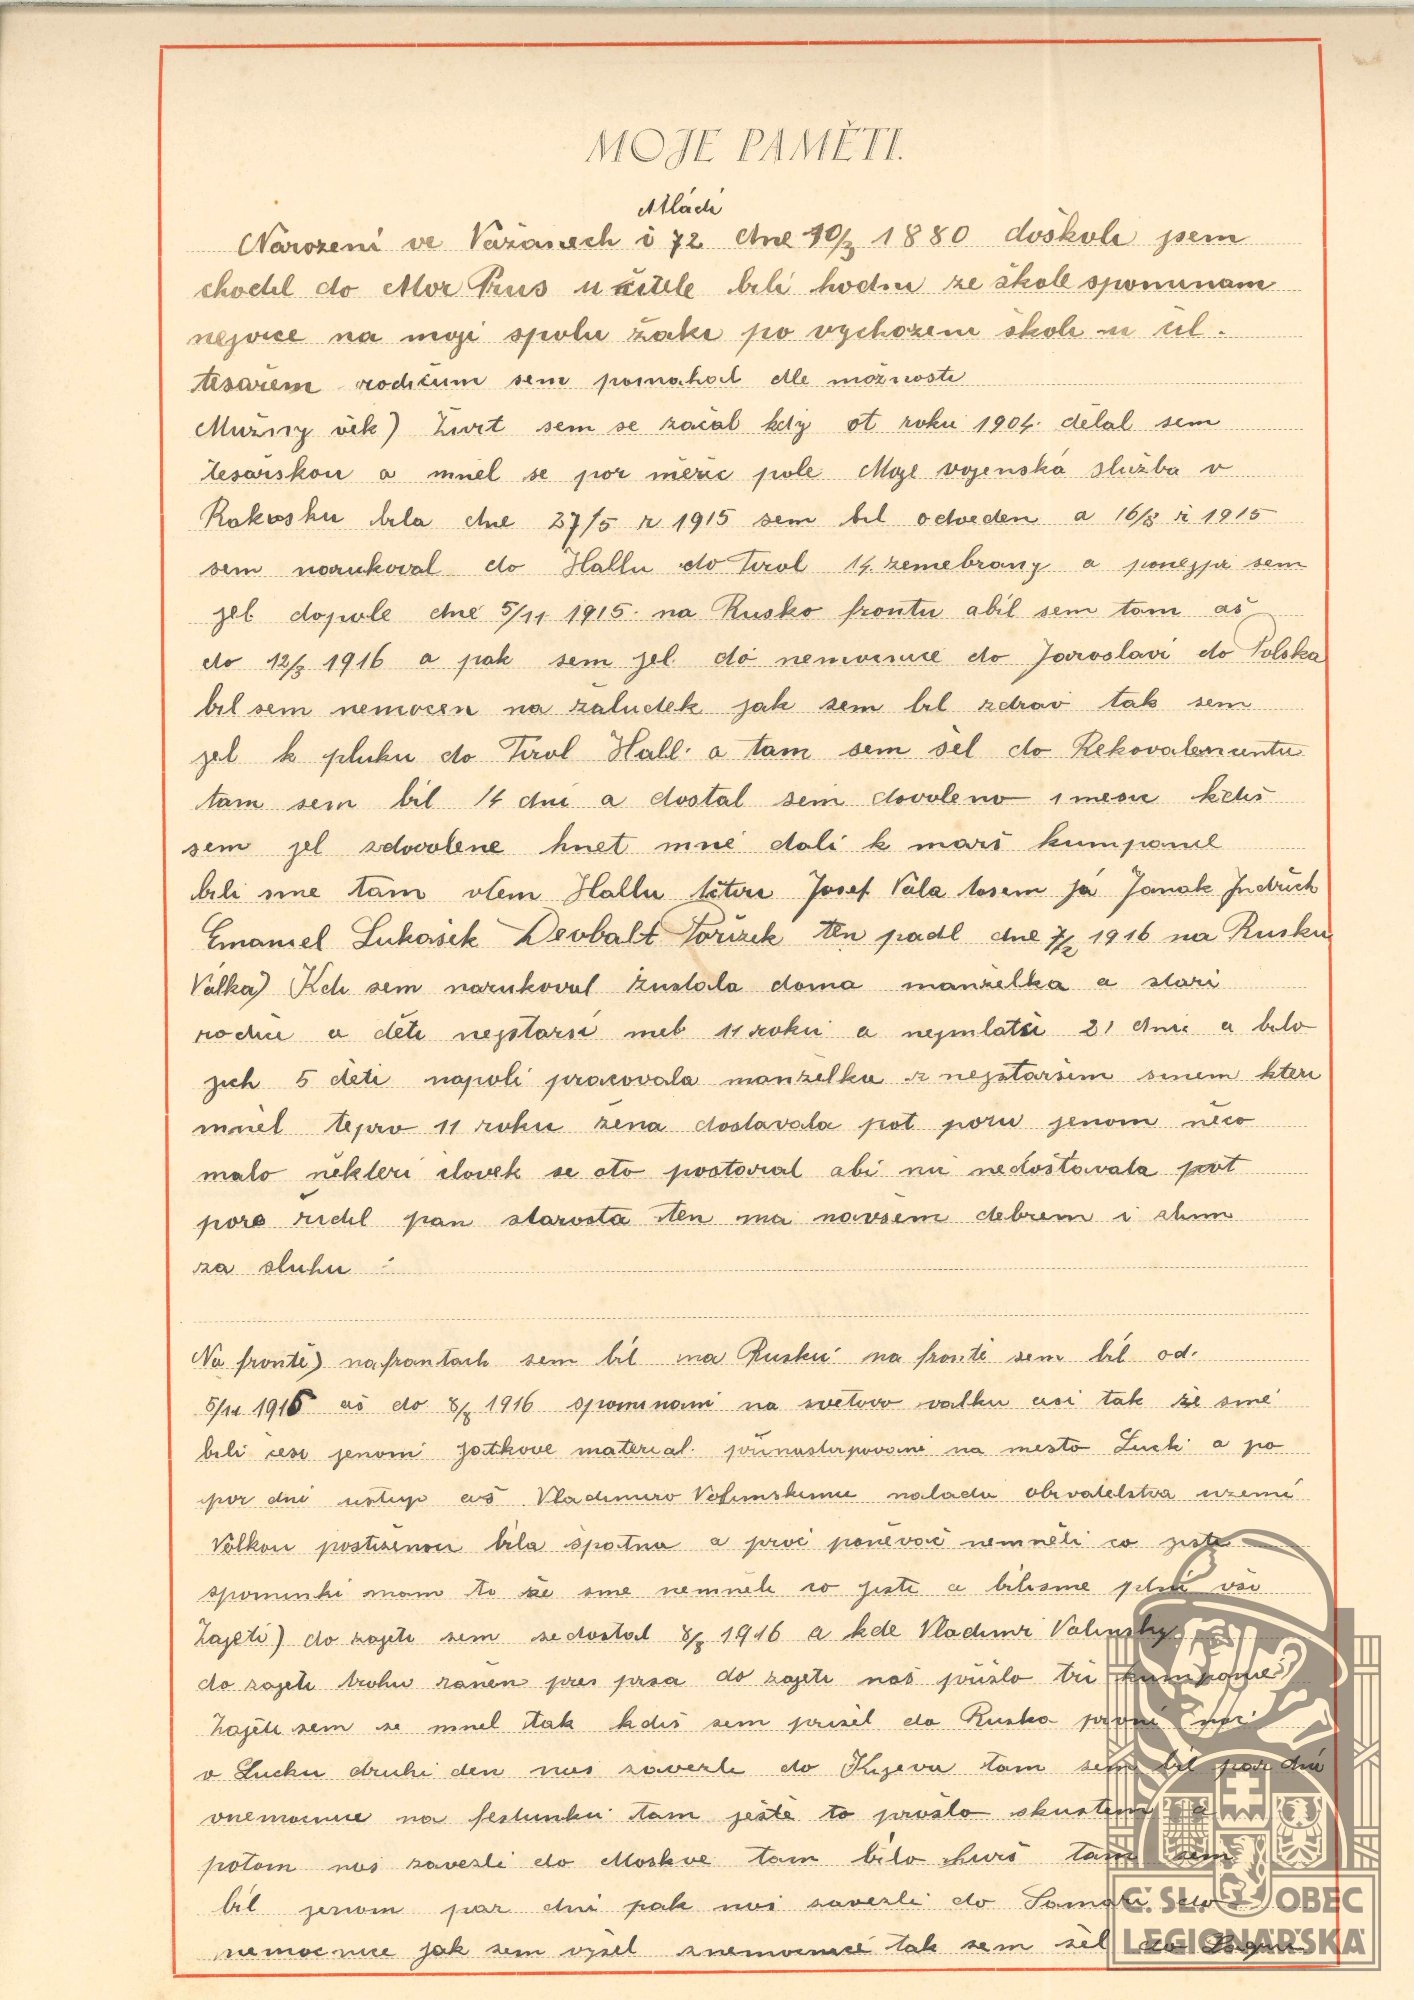 MOJE PAMĚTI.
Mládí
Narození ve Vážanech č 72 dne 10/3 1880 doškoli jsem
chodil do Mor Prus učitele bili hodni ze škole spominam
nejvice na moji spolu žaki po vychozeni školi u čil.
tesařem rodičum sem pomahal dle možnosti
Mužny věk) Živit sem se začal kdy ot roku 1904. dělal sem
tesařskou a mněl se por měřic pole Moje vojenská služba v
Rakosku bila dne 27/5 r 1915 sem bil odveden a 16/8 r 1915
sem norukoval do Hallu do Tirol 14. zemebrany a ponejpr sem
jel dopole dne 5/11 1915. na Rusko frontu abil sem tam aš
do 12/3 1916 a pak sem jel do nemocnice do Jaroslavi do Polska
bil sem nemocen na žaludek jak sem bil zdrav tak sem
jel k pluku do Tirol Hall. a tam sem šel do Rekovalencentu
tam sem bil 14 dni a dostal sem dovoleno 1 mesic kdiš
sem jel zdovolene hnet mně dali k marš kumpanie
bili sme tam vtem Hallu čtiri Josef Vala tosem já Janak Jndřich
Emaniel Lukašik Devbalt Pořizek ten padl dne 7/2 1916 na Rusku
Válka) Kdi sem narukoval zustala doma manželka a stari
rodiče a děti nejstarši mel 11 roku a nejmlatši 21 dni a bilo
jich 5 děti napoli pracovala manželka z nejstaršim sinem kteri
mněl teprv 11 roku žena dostavala pot poru jenom něco
malo některi človek se oto postaral abi ni nedostavala pot
poro řidil pan starosta ten ma navšem dobrem i zlim
za sluhu
Na frontě) nafrontach sem bil na Rusku na frontě sem bil od.
5/11 1915 aš do 8/8 1916 spominani na svetovo valku asi tak že sme
bili česi jenom jatkove material. přinastupovani na mesto Luck a po
por dni ustup aš Vladimiro Volinskimu nalada obivatelstva uzemi
Válkou postiženou bila špatna a proč poněvač nemněli co jisti
spominki mam to že sme nemněli co jisti a bilisme plni vši
Zajetí) do zajeti sem sedostal 8/8 1916 a kde Vladimir Valinsky
do zajeti trohu raněn pres prsa do zajeti naš přišlo tři kumpanie
Zajeti sem se mněl tak kdiš sem prišel do Ruska prvni noc
v Lucku druhi den nas zavezli do Kyjeva tam sem bil par dni
vnemocnice na festunku tam ještě to prošlo skustem a
potom nas zavezli do Moskve tam bilo hurš tam sem
bil jenom par dni pak nas zavezli do Samari do
nemocnice jak sem vyšel znemocnice tak sem šel do
Č. SL. OBEC
LEGIONÁŘSKÁ